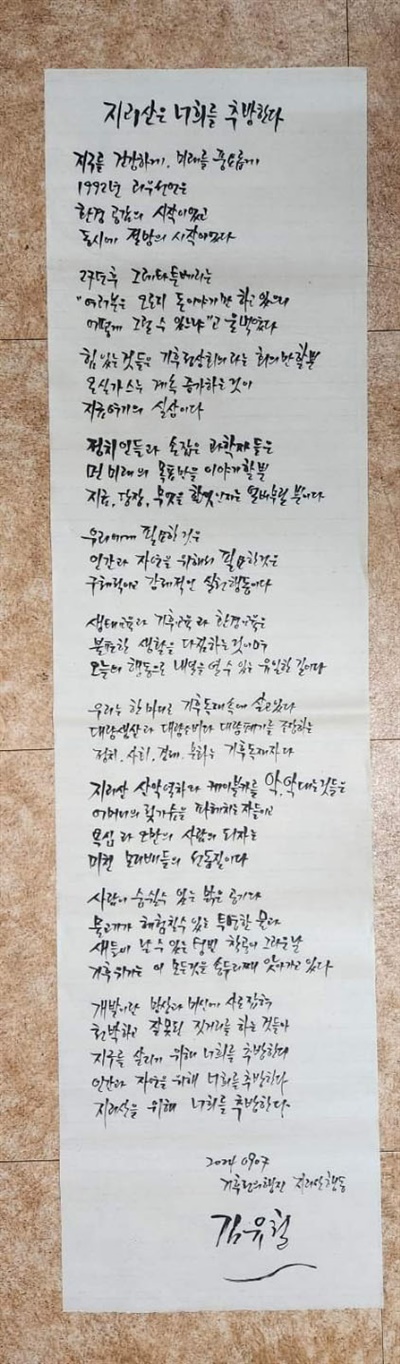 지리산은 너희를 추방한다
지구를 건강하게, 미래를 풍요롭게
1992년 리우선언은
환경 공감의 시작이었고
동시에 절망의 시작이었다
27년후 그레타 툰베리는
"여러분은 오로지 돈이야기만 하고 있으니
어떻게 그럴 수 있느냐"고 울먹였다
힘 있는 것들은 기후정상회의라는 회의만 할뿐
온실가스는 계속 증가하는 것이
지금여기의 실상이다
정치인들과 손잡은 과학자들은
먼 미래의 목표만을 이야기할뿐
지금, 당장, 무엇을 할것인지는 얼버무릴 뿐이다
우리에게 필요한 것은
인간과 자연을 위해서 필요한 것은
구체적이고 강제적인 실천행동이다
생태교육과 기후교육과 환경교육은
불편한 생활을 다짐하는 것이며
오늘의 행동으로 내일을 열 수 있는 유일한 길이다
우리는 한마디로 기후독재속에 살고있다
대량생산과 대량소비와 대량폐기를 조장하는
정치, 사회, 경제, 문화는 기후독재자다
지리산 산악열차와 케이블카를 악, 악 대는것들은
어머니의 젖가슴을 파헤치는 자들이고
욕심과 오만의 사람의 되자는
미친 모리배들의 선동질이다
사람이 숨쉴수 있는 맑은 공기와
물고기가 헤엄칠수 있는 투명한 물과
새들이 날 수 있는 텅빈 하늘이 그리운 날
기후위기는 이 모든것을 송두리째 앗아가고 있다
개발이란 망상과 미신에 사로잡혀
천박하고 잘못된 짓거리를 하는 것들아
지구를 살리기 위해 너희를 추방한다
인간과 자연을 위해 너희를 추방한다
지리산을 위해 너희를 추방한다.
2024 0907
기후정의행진 지리산행동
김유철